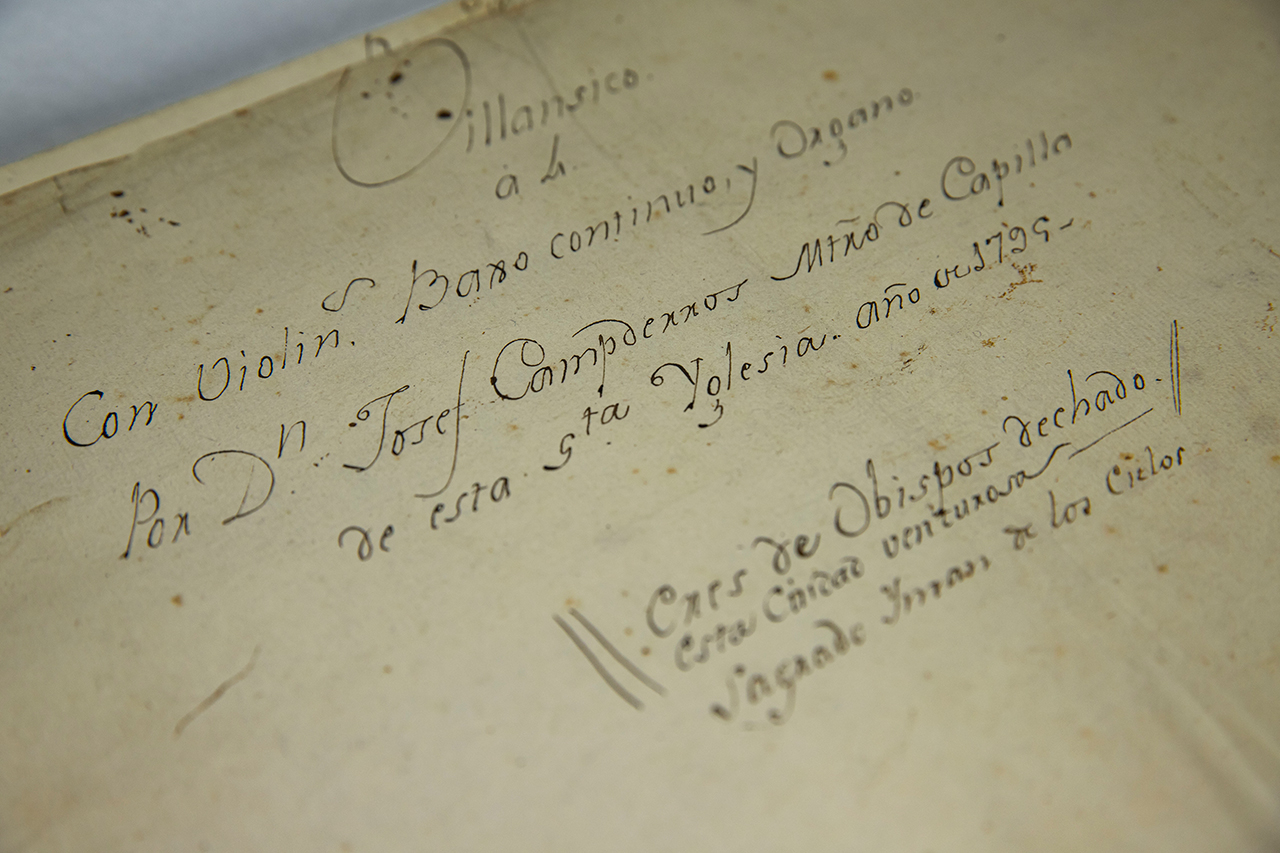 Villansico.
à 4.
Con Violin.s Baxo continuo, y Organo.
Por D.n Josef Campderros Mtrõ de Capilla
de esta S.ta Yglesia. año de 1795-
Eres de Obispos dechado.
esta Ciudad venturosa
Sagrado Yman de los Cielos